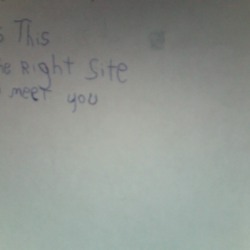 This
Right Site
meet you